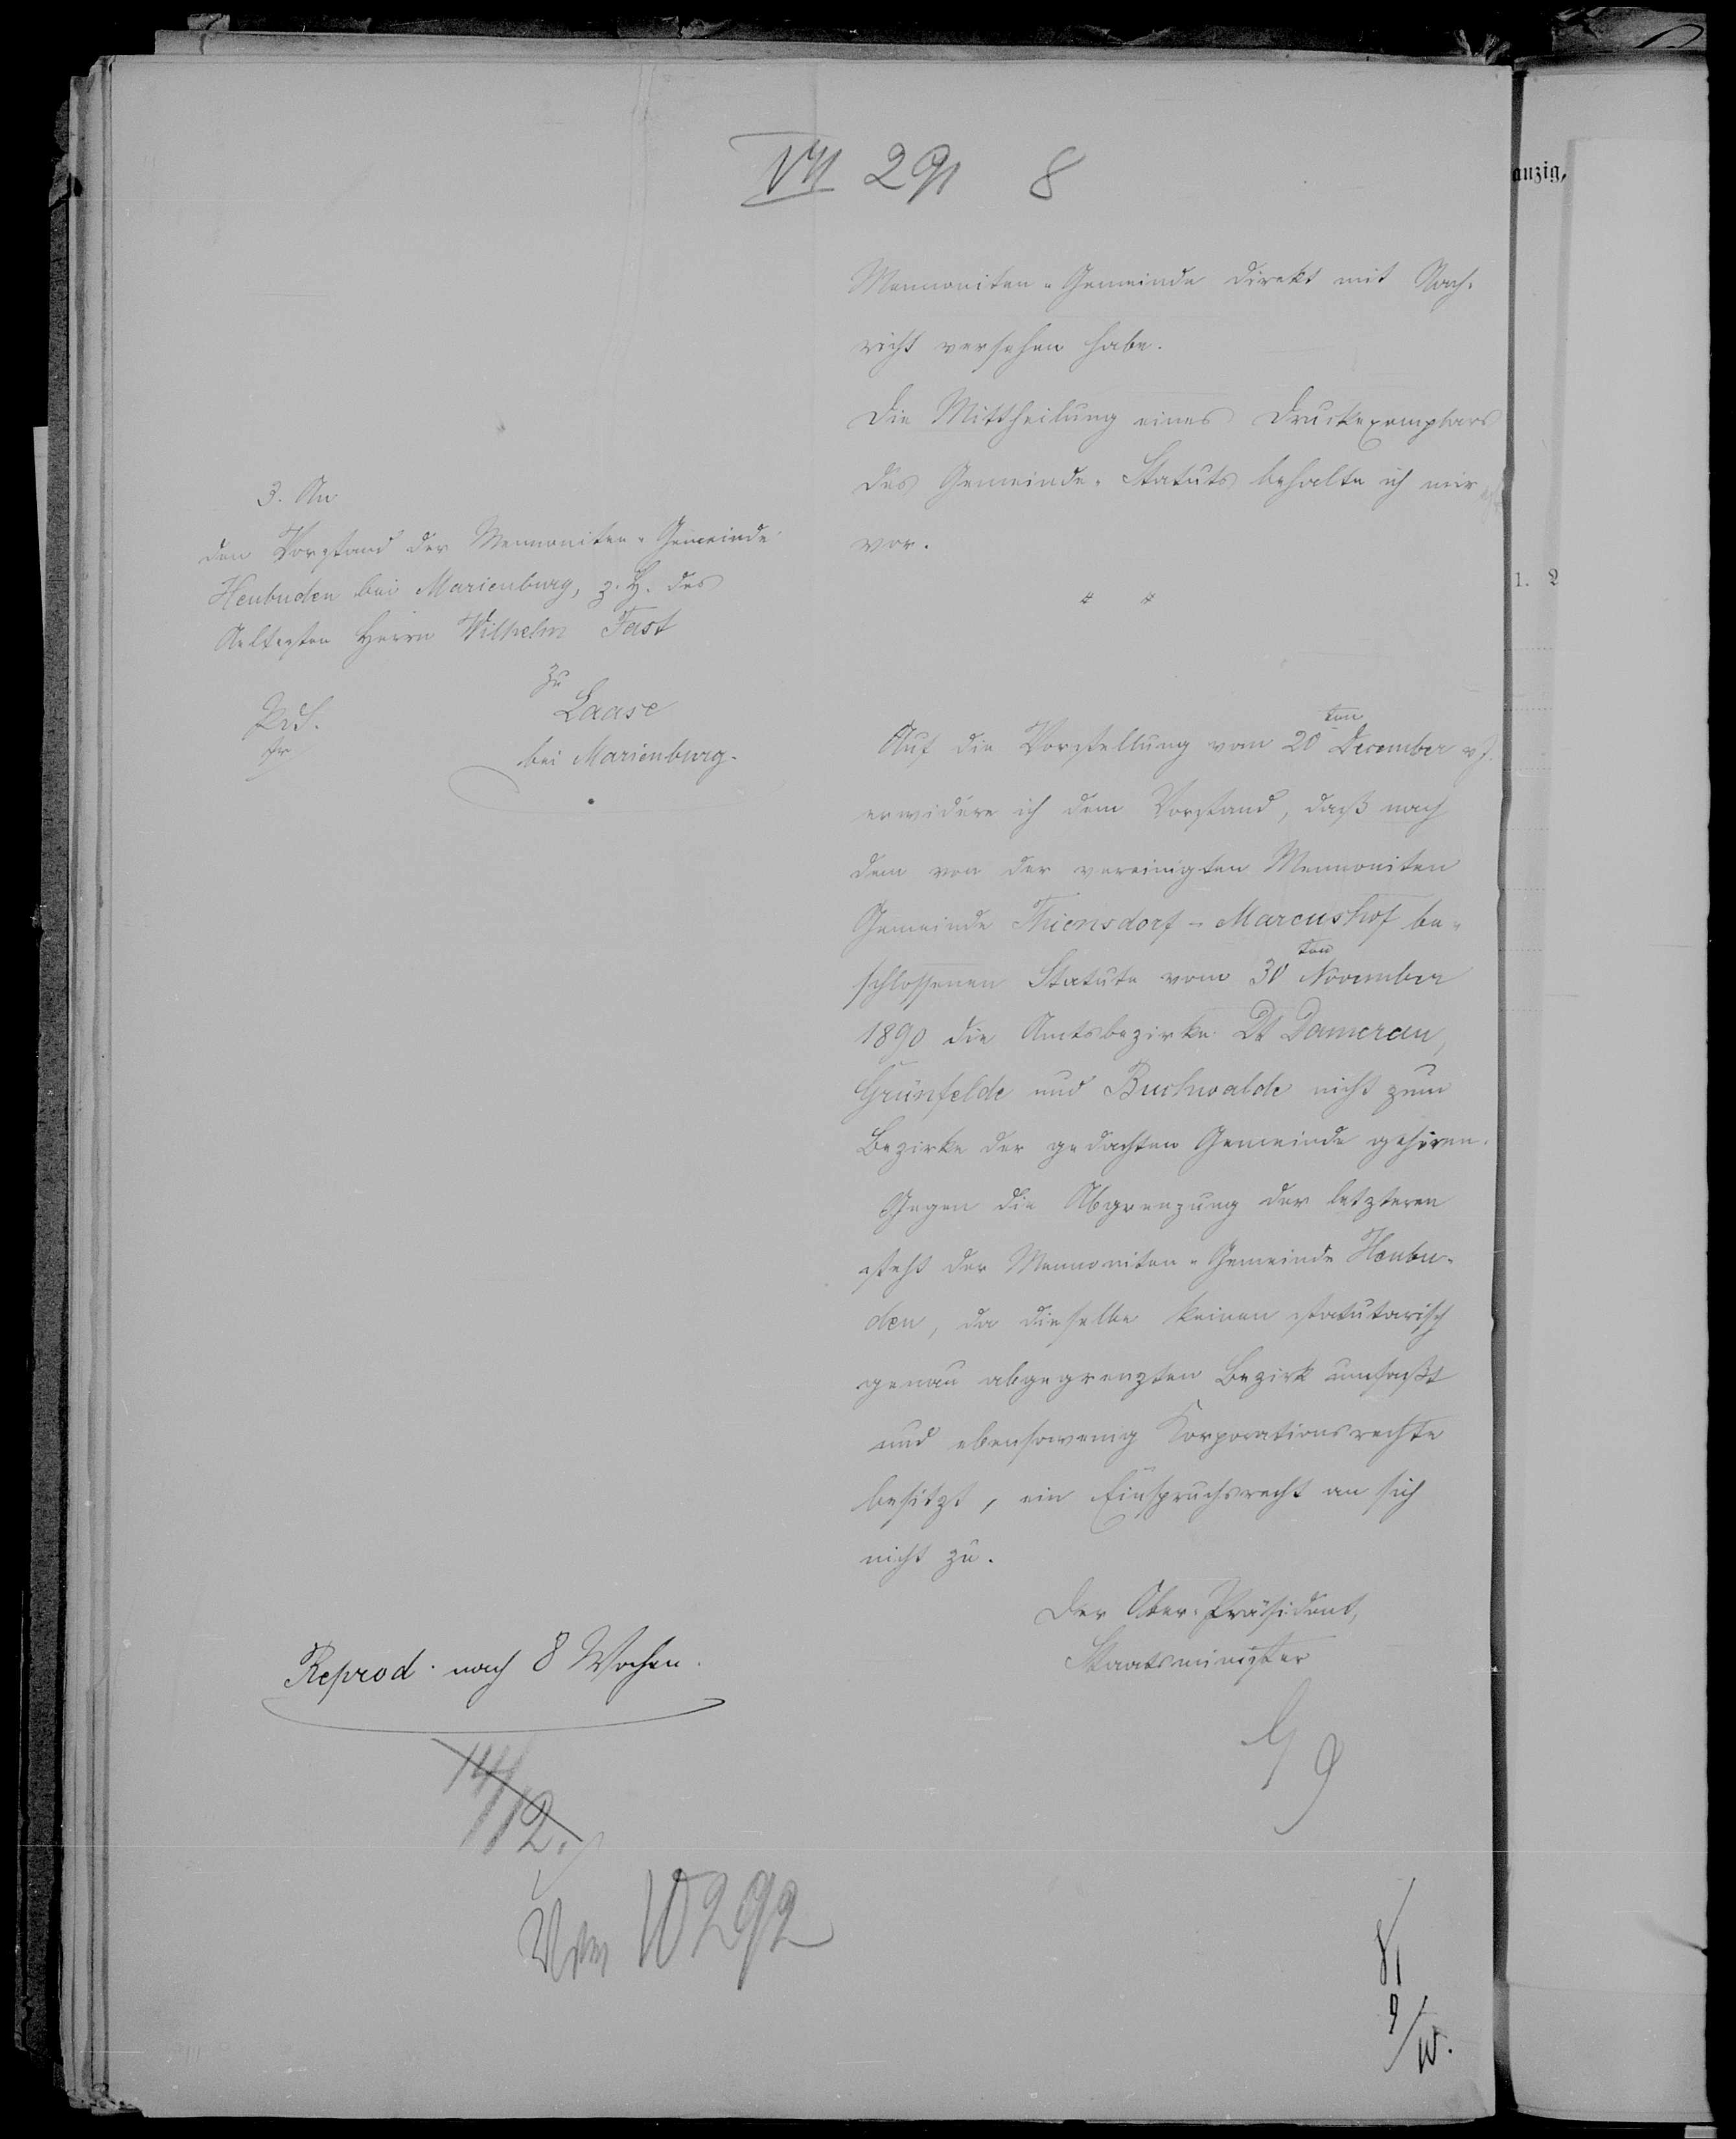 VII 291 8
Mennoniten-Gemeinde direkt mit Nach-
richt versehen habe.
Die Mittheilung eines Druckexemplars
des Gemeinde-Statuts behalte ich mir
vor.
3. An
den Vorstand der Mennoniten-Gemeinde
Heubuden bei Marienburg, z. H. des
Aeltesten Herrn Wilhelm Fast
zu
Laase
bei Marienburg.
Auf die Vorstellung vom 20ten December v. J.
erwidere ich dem Vorstand, daß nach
dem von der vereinigten Mennoniten
Gemeinde Thiensdorf-Marcushof be-
schlossenen Statute vom 30ten November
1890 die Amtsbezirke Dt Damerau,
Grünfelde und Buchwalde nicht zum
Bezirke der gedachten Gemeinde gehören.
Gegen die Abgrenzung der letzteren
steht der Mennoniten-Gemeinde Heubu-
den, da dieselbe keinen statutarisch
genau abgegrenzten Bezirk umfaßt
und ebensowenig Korporationsrechte
besitzt, ein Einspruchsrecht an sich
nicht zu.
Der Ober-Präsident,
Staatsminister
Reprod. nach 8 Wochen.
14/12.
10292
anzig,
1. 2